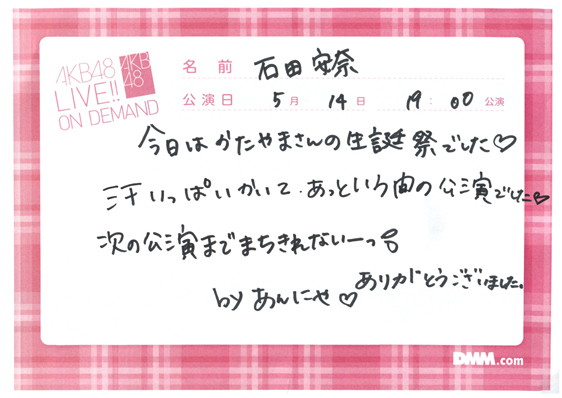 AKB48
LIVE!!
ON DEMAND
AKB
48
名前 石田安奈
公演日 5月 14日 19:00公演
今日はかたやまさんの生誕祭でした♡
汗いっぱいかいて、あっという間の公演でした♡
次の公演までまちきれないーっ
ありがとうございました。
by あんにゃ♡
DMM.com